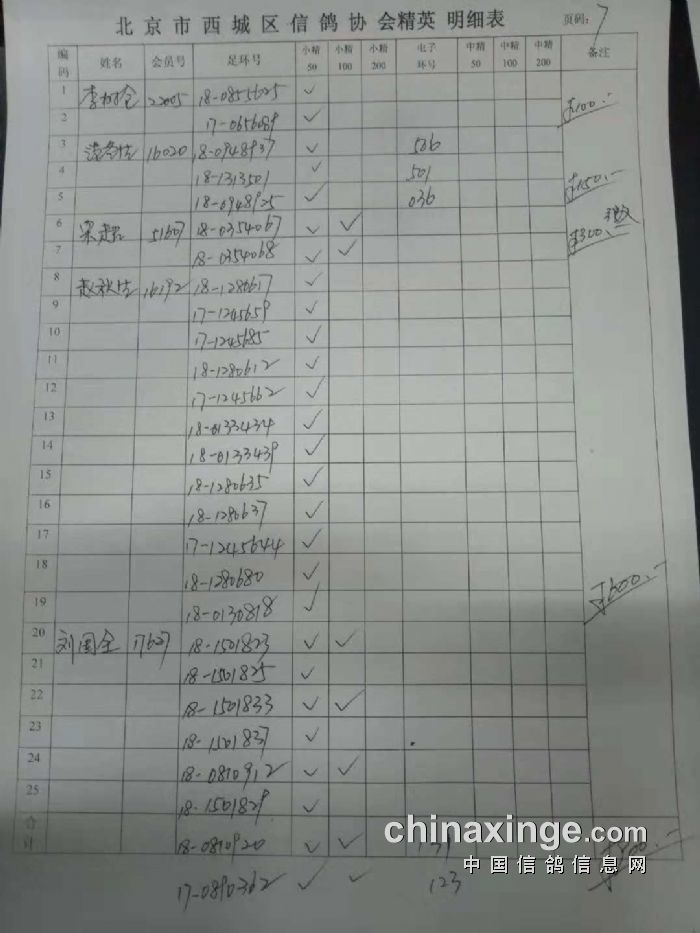 北京市西城区信鸽协会精英 明细表 页码：7
编码 姓名 会员号 足环号 小精50 小精100 小精200 电子环号 中精50 中精100 中精200 备注
1 李树仓 22005 18-0855625 ✓
2 17-0656089 ✓ ¥100.-
3 16020 18-0948937 ✓ 506
4 18-1313501 ✓ 501
5 18-0948925 ✓ 036 ¥150.-
6 梁超 51607 18-0354067 ✓ ✓
7 18-0354068 ✓ ✓ ¥300.
8 赵秋生 16192 18-1280617 ✓
9 17-1245659 ✓
10 17-1245685 ✓
11 18-1280612 ✓
12 17-1245662 ✓
13 18-0133434 ✓
14 18-0133439 ✓
15 18-1280635 ✓
16 18-1280637 ✓
17 17-1245644 ✓
18 18-1280680 ✓
19 18-0130818 ✓ ¥600.-
20 刘国全 17627 18-1501823 ✓ ✓
21 18-1501825 ✓
22 18-1501833 ✓ ✓
23 18-1501837 ✓
24 18-0810912 ✓ ✓
25 18-1501829 ✓
合计 18-0810920 ✓ ✓
17-0890362 ✓ ✓ 123
chinaxinge.com
中国信鸽信息网